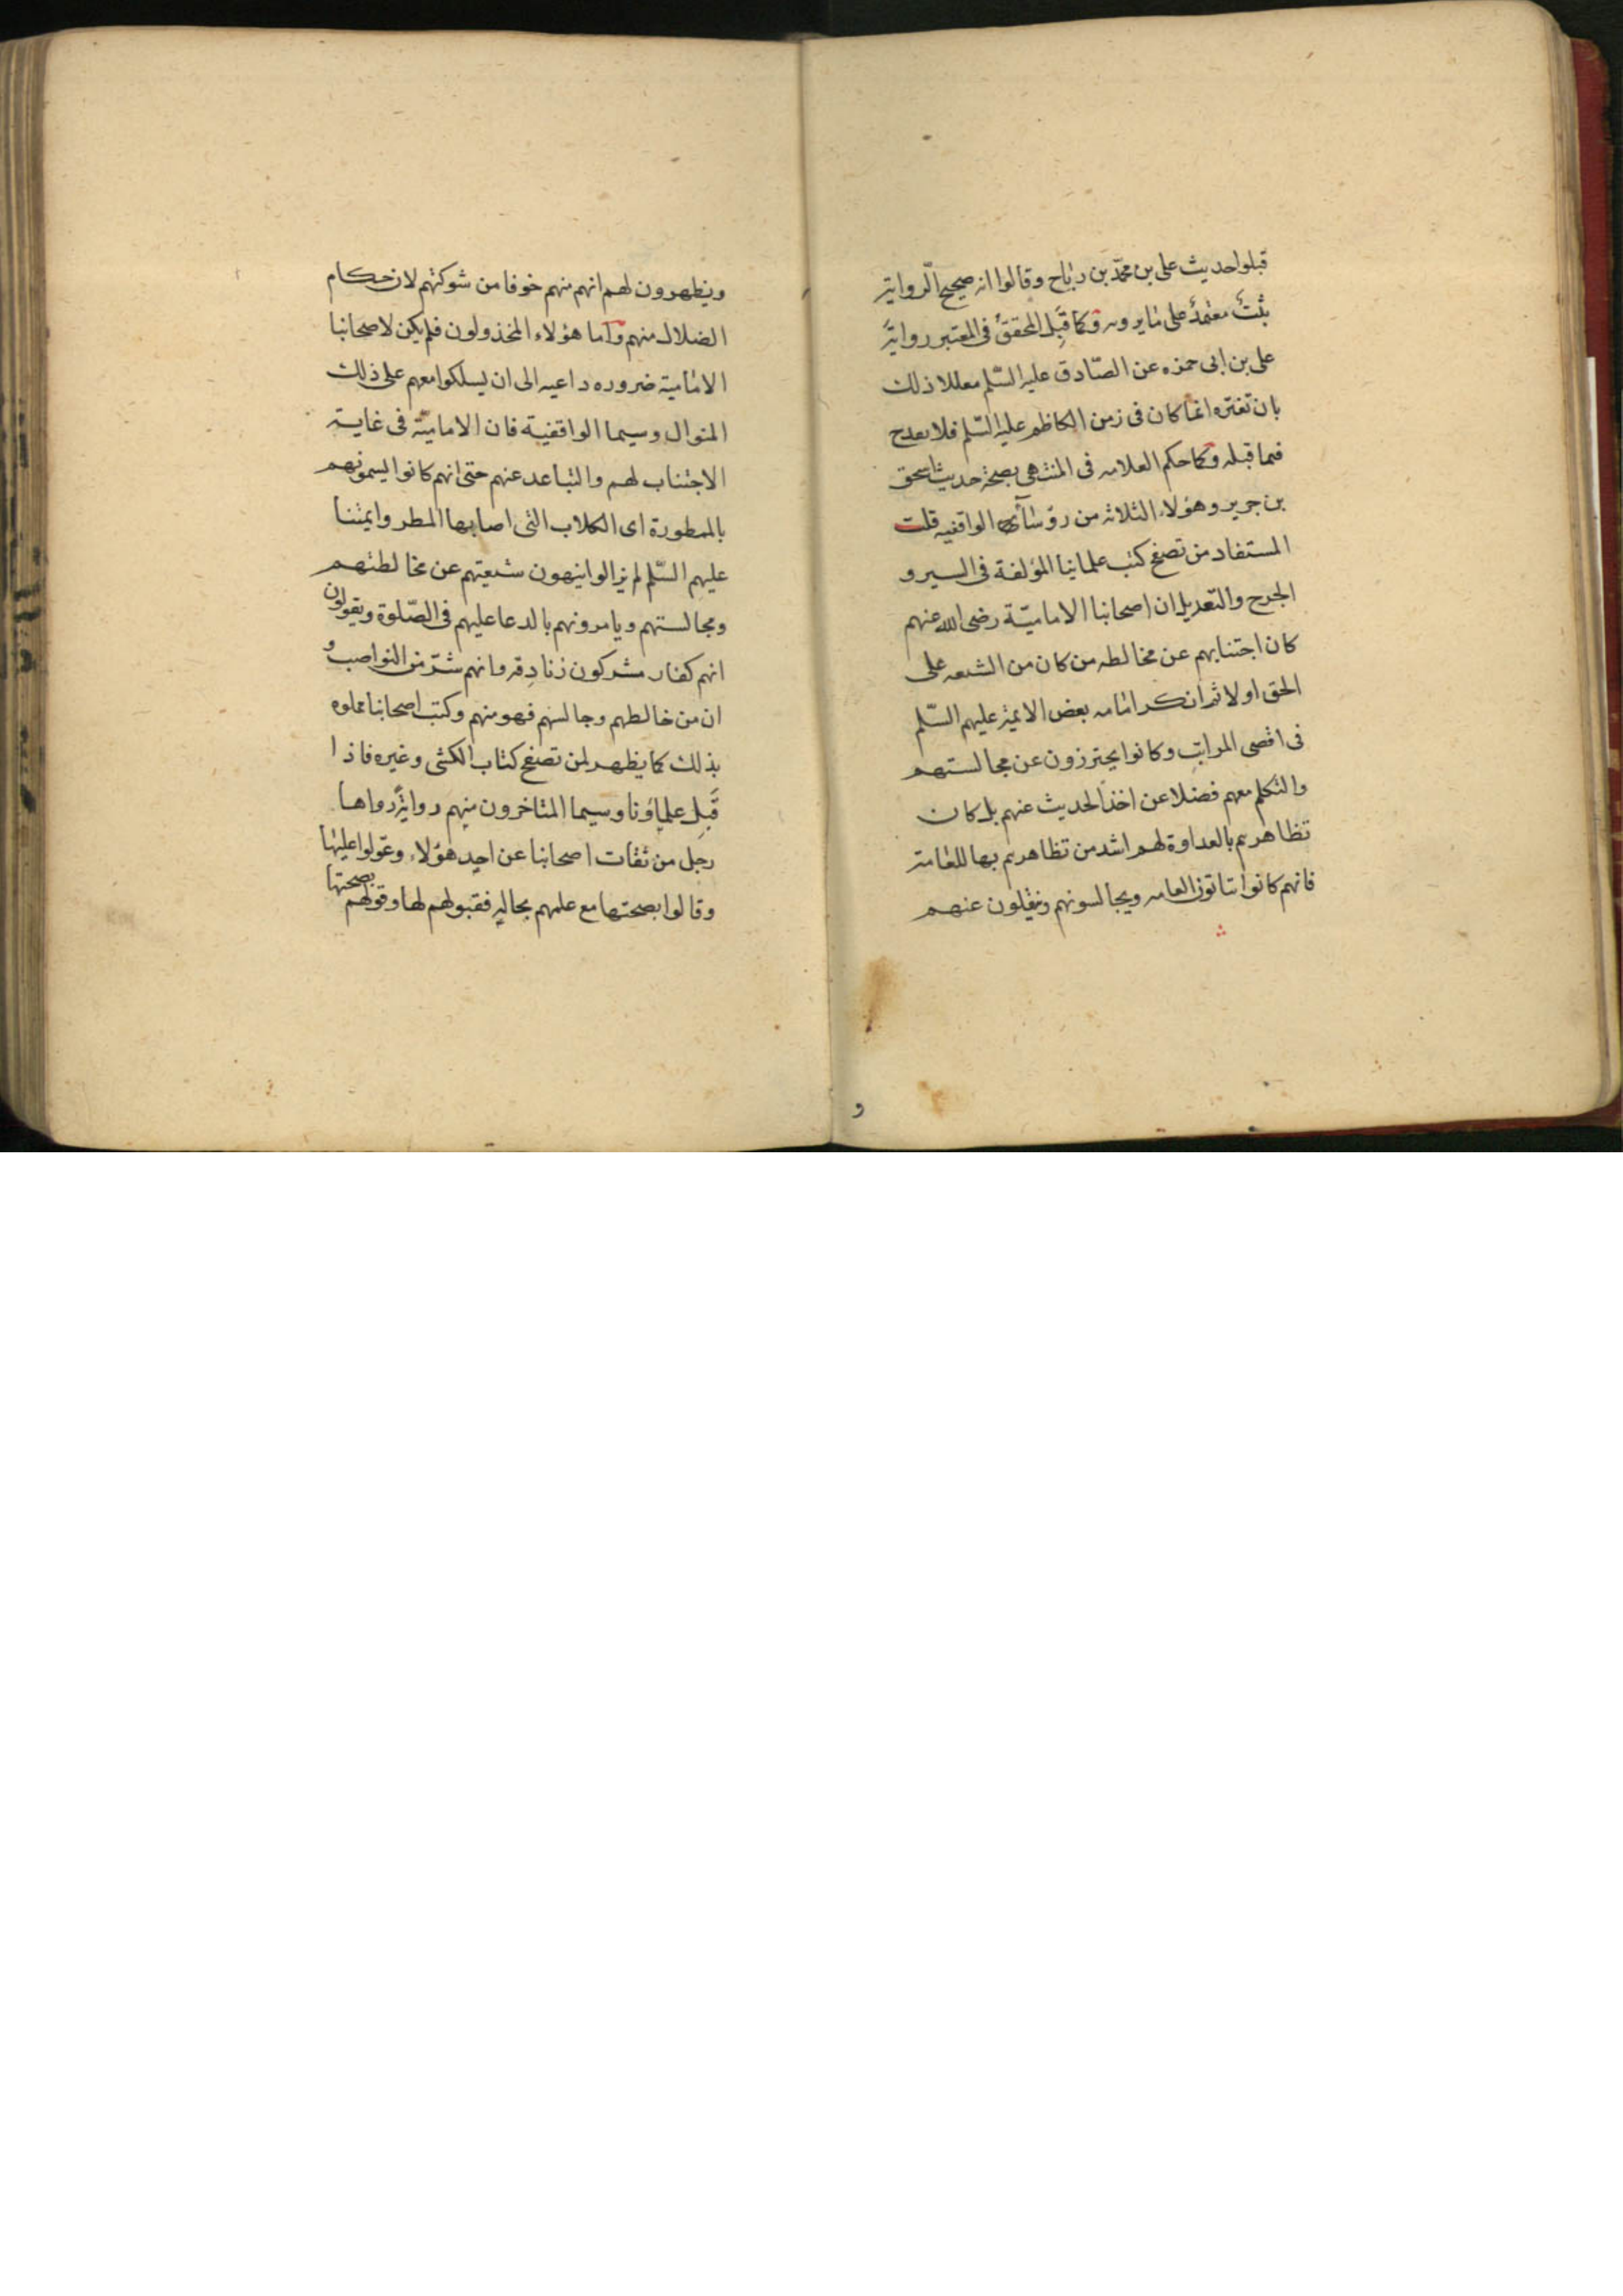 قبلوا حديث على بن محمّد بن رباح وقالوا انه صحيح الرواية
ثبت معتمد على ما يرويه وكما قبل المحقق فى المعتبر رواية
على بن ابى حمزه عن الصّادق عليه السّلم معللا ذلك
بان تغيّره انما كان فى زمن الكاظم عليه السّلم فلا يقدح
فيما قبله وكما حكم العلامه فى المنتهى بصحة حديث اسحق
بن جرير وهؤلاء الثلاثه من رؤساء الواقفيه قلت
المستفاد من تصفح كتب علمائنا المؤلفة فى السير و
الجرح والتعديل ان اصحابنا الاماميّة رضى الله عنهم
كان اجتنابهم عن مخالطه من كان من الشيعه على
الحق اولا ثم انكر امامه بعض الائمة عليهم السّلم
فى اقصى المراتب وكانوا يحترزون عن مجالستهم
والتكلم معهم فضلا عن اخذ الحديث عنهم بل كان
تظاهرهم بالعداوة لهم اشد من تظاهرهم بها للعامة
فانهم كانوا يتاقون العامه ويجالسونهم وينقلون عنهم
و
ويظهرون لهم انهم منهم خوفا من شوكتهم لان حكام
الضلال منهم واما هؤلاء المخذولون فلم يكن لاصحابنا
الامامية ضروره داعيه الى ان يسلكوا معهم على ذلك
المنوال وسيما الواقفية فان الاماميّة فى غاية
الاجتناب لهم والتباعد عنهم حتى انهم كانوا يسمونهم
بالممطورة اى الكلاب التى اصابها المطر وايمتنا
عليهم السّلم لم يزالوا ينهون شيعتهم عن مخالطتهم
ومجالستهم ويامرونهم بالدعا عليهم فى الصّلوة ويقولون
انهم كفار مشركون زنادقه وانهم شرّ من النواصب و
ان من خالطهم وجالسهم فهو منهم وكتب اصحابنا مملوه
بذلك كما يظهر لمن تصفح كتاب الكشى وغيره فاذا
قبل علماؤنا وسيما المتاخرون منهم رواية رواها
رجل من ثقات اصحابنا عن احد هؤلاء وعوّلوا عليها
وقالوا بصحتها مع علمهم بحاله فقبولهم لها وقولهم بصحتها